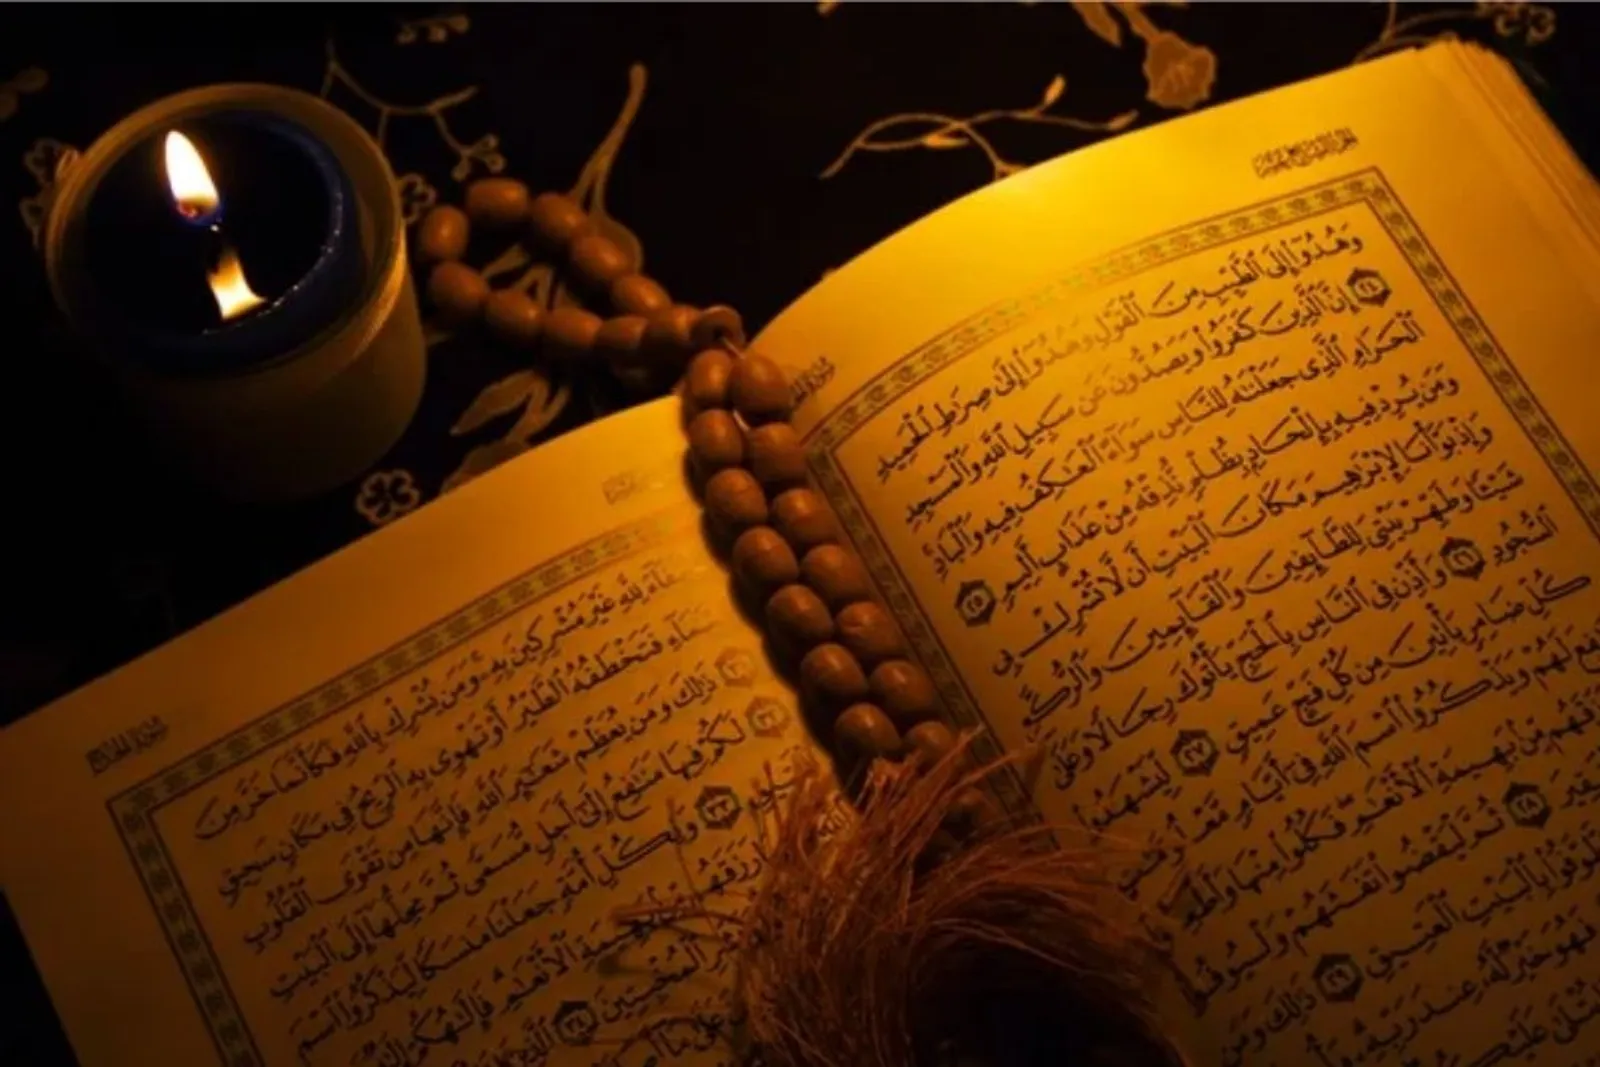 الجزء السابع عشر
وَهُدُوٓا۟ إِلَى ٱلطَّيِّبِ مِنَ ٱلْقَوْلِ وَهُدُوٓا۟ إِلَىٰ صِرَٰطِ ٱلْحَمِيدِ
٢٤ إِنَّ ٱلَّذِينَ كَفَرُوا۟ وَيَصُدُّونَ عَن سَبِيلِ ٱللَّهِ وَٱلْمَسْجِدِ
ٱلْحَرَامِ ٱلَّذِى جَعَلْنَٰهُ لِلنَّاسِ سَوَآءً ٱلْعَٰكِفُ فِيهِ وَٱلْبَادِ
وَمَن يُرِدْ فِيهِ بِإِلْحَادٍۭ بِظُلْمٍ نُّذِقْهُ مِنْ عَذَابٍ أَلِيمٍ ٢٥
وَإِذْ بَوَّأْنَا لِإِبْرَٰهِيمَ مَكَانَ ٱلْبَيْتِ أَن لَّا تُشْرِكْ بِى
شَيْـًٔا وَطَهِّرْ بَيْتِىَ لِلطَّآئِفِينَ وَٱلْقَآئِمِينَ وَٱلرُّكَّعِ
ٱلسُّجُودِ ٢٦ وَأَذِّن فِى ٱلنَّاسِ بِٱلْحَجِّ يَأْتُوكَ رِجَالًا وَعَلَىٰ
كُلِّ ضَامِرٍ يَأْتِينَ مِن كُلِّ فَجٍّ عَمِيقٍ ٢٧ لِّيَشْهَدُوا۟
لَهُمْ وَيَذْكُرُوا۟ ٱسْمَ ٱللَّهِ فِىٓ أَيَّامٍ
مِّنۢ بَهِيمَةِ ٱلْأَنْعَٰمِ فَكُلُوا۟ مِنْهَا وَأَطْعِمُوا۟
٢٨ ثُمَّ لْيَقْضُوا۟ تَفَثَهُمْ وَلْيُوفُوا۟
بِٱلْبَيْتِ ٱلْعَتِيقِ ٢٩ ذَٰلِكَ وَمَن
فَهُوَ خَيْرٌ لَّهُۥ عِندَ رَبِّهِۦ
سورة الحج
لِلَّهِ غَيْرَ مُشْرِكِينَ بِهِۦ وَمَن يُشْرِكْ بِٱللَّهِ فَكَأَنَّمَا خَرَّ مِنَ
فَتَخْطَفُهُ ٱلطَّيْرُ أَوْ تَهْوِى بِهِ ٱلرِّيحُ فِى مَكَانٍ سَحِيقٍ
٣١ ذَٰلِكَ وَمَن يُعَظِّمْ شَعَٰٓئِرَ ٱللَّهِ فَإِنَّهَا مِن تَقْوَى ٱلْقُلُوبِ
٣٢ لَكُمْ فِيهَا مَنَٰفِعُ إِلَىٰٓ أَجَلٍ مُّسَمًّى ثُمَّ مَحِلُّهَآ إِلَى ٱلْبَيْتِ
٣٣ وَلِكُلِّ أُمَّةٍ جَعَلْنَا مَنسَكًا لِّيَذْكُرُوا۟ ٱسْمَ
ٱلْأَنْعَٰمِ فَإِلَٰهُكُمْ
ٱلْمُخْبِتِينَ ٣٤ ٱلَّذِينَ